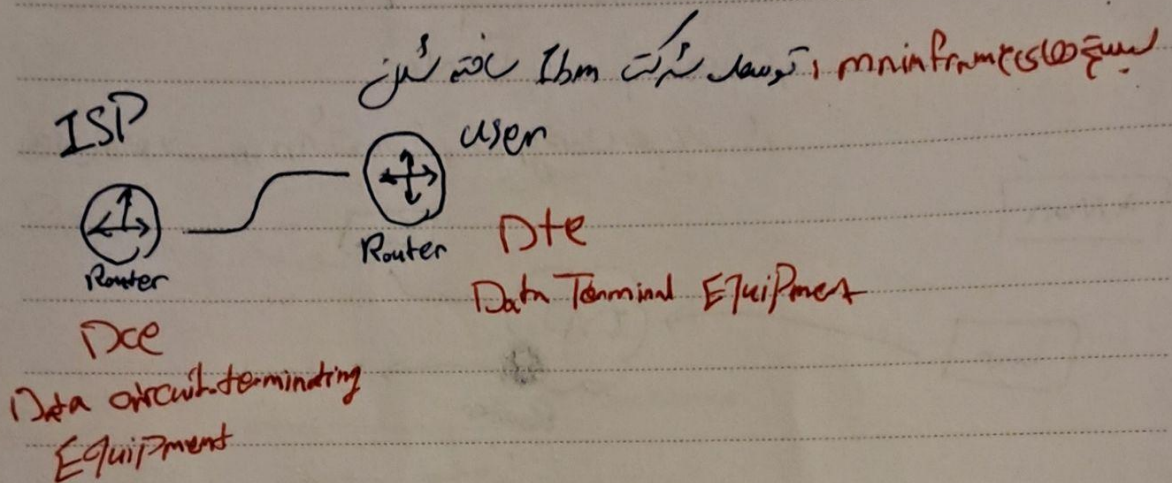 سیستم های mainframe، توسط شرکت Ibm ساخته شدن
ISP
user
Router
Router
Dte
Data Terminal Equipment
Dce
Data circuit-terminating
Equipment